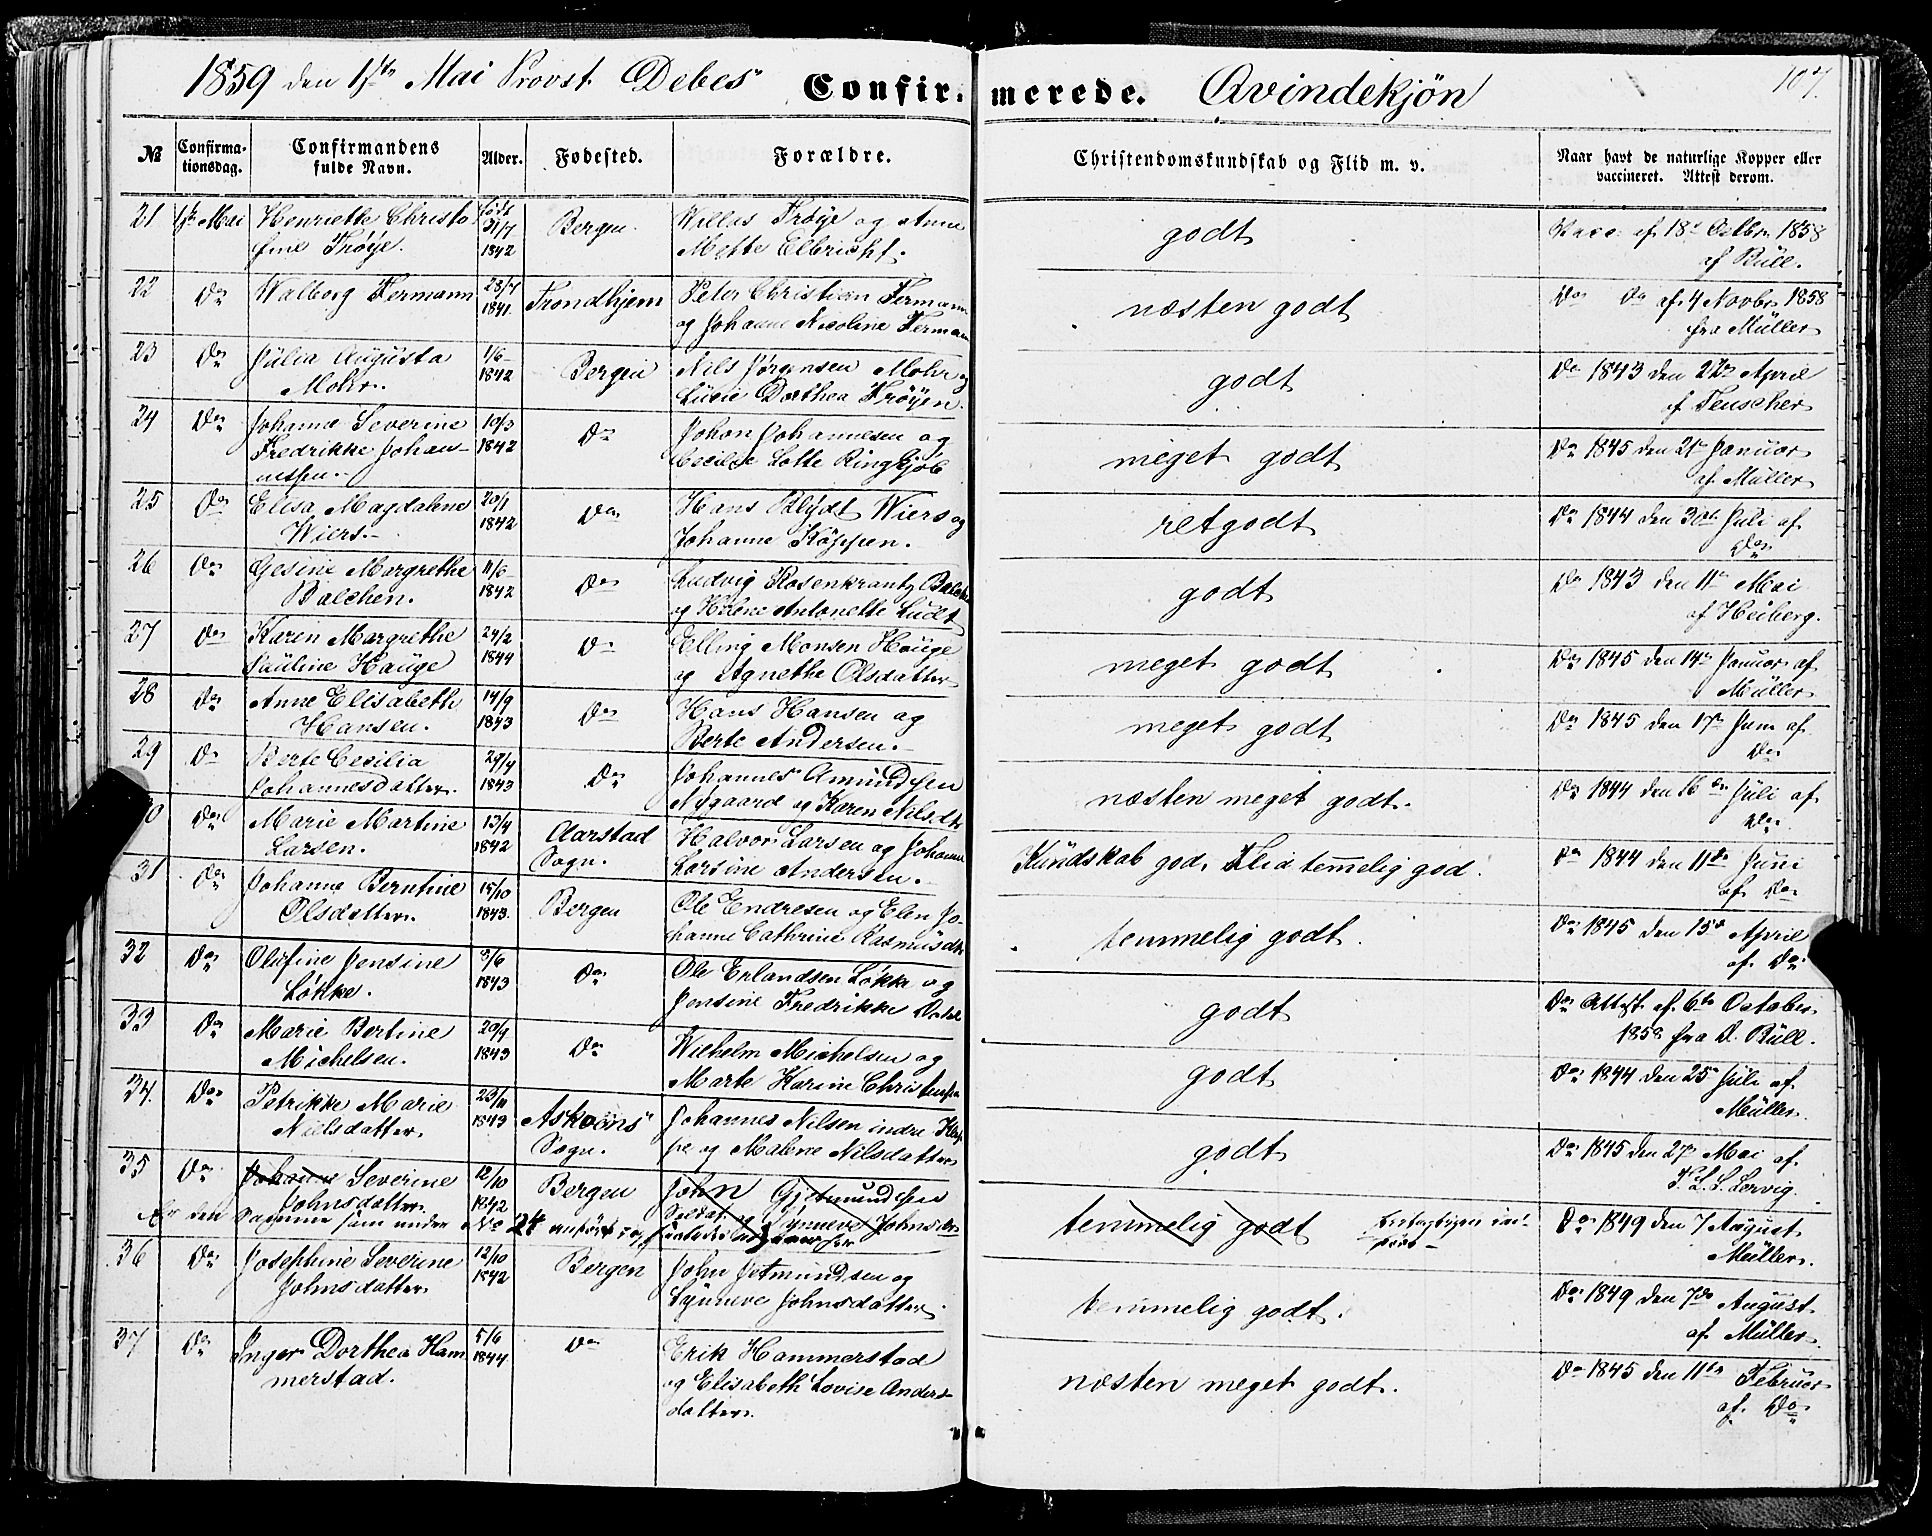 1859 den 1ste Mai Provst Debes Confirmerede. Qvindekjön 107.
№ Confirmationsdag. Confirmandens fulde Navn. Alder. Fødested. Forældre. Christendomskundskab og Flid m. v. Naar havt de naturlige Kopper eller vaccineret. Attest derom.
21 1ste Mai Henriette Christo født 31/7 Bergen. Willas Trøye og Anne godt Vacc. af 18de Octbr 1858
fine Trøye. 1842 Mette Elbricht. af Büll.
22 Do Walborg Fermann 23/7 Trondhjem Peter Christian Fermann næsten godt Do Do af 4 Novbr 1858
1841. og Johanne Nicoline Ferman fra Müller
23 Do Julia Augusta 1/6 Bergen Nils Jørgensen Mohr og godt Do 1843 den 22de April
Mohr. 1842 Lucie Dorthea Trøyen. af Teuscher
24 Do Johanne Severine 10/3 Do Johan Johannesen og meget godt Do 1845 den 21de Januar
Fredrikke Johan- 1842 Cecilie Lotte Ringkjøb af Müller
nessen.
25 Do Elisa Magdalene 20/1 Do Hans Blydt Wiers og retgodt Do 1844 den 30te Juli af
Wiers. 1842 Johanne Köppen. Do
26 Do Gesine Margrethe 11/6 Do Ludvig Rosenkrantz Balchen godt Do 1843 den 11te Mai
Balchen. 1842 og Helene Antonette Ludt af Heiberg.
27 Do Karen Margrethe 24/2 Do Elling Monsen Hauge meget godt Do 1845 den 14de Januar af
Pauline Hauge 1844 og Agnethe Olsdatter Müller
28 Do Anne Elisabeth 14/9 Do Hans Hansen og meget godt Do 1845 den 17de Juni af
Hansen. 1843 Berte Andersen. Do
29 Do Berte Cecilia 29/4 Do Johannes Amundsen næsten meget godt. Do 1844 den 16de Juli af
Johannesdatter. 1843 Nygaard og Karen Nilsdtr Do
30 Do Marie Martine 13/4 Aarstad Halvor Larsen og Johanne Kundskab god, Flid temmelig god. Do 1844 den 11te Juni
Larsen. 1842 Sogn. Larsine Andersen. af Do
31 Do Johanne Berntine 15/10 Bergen Ole Endresen og Elen Jo- temmelig godt. Do 1845 den 15de April
Olsdatter. 1843. hanne Cathrine Rasmusdtr af Do
32 Do Olufine Jensine 3/6 Do Ole Erlandsen Løkke og godt Do Attest af 6te October
Løkke. 1843 Jensine Fredrikke 1858 fra D. Büll.
33 Do Marie Bertine 20/4 Do Wilhelm Michelsen og godt Do 1844 den 25de Juli af
Michelsen. 1843 Marte Karine Christensen Müller.
34. Do Petrikke Marie 23/11 Askøens Johannes Nilsen indre Klep godt Do 1845 den 27de Mai af
Nielsdatter. 1843 Sogn. pe og Malene Nilsdatter L. S. Lervig.
35 Do Johanne Severine 12/10 Bergen John Gjetmundsen temmelig godt Do 1849 den 7 August
Johnsdatter. 1842 Soldat og Synneve Johnsdtr Müller.
Er den samme som under No 24 anført og
36 Do Josephine Severine 12/10 Bergen John Jetmundsen og temmelig godt. Do 1849 den 7de August
Johnsdatter 1842 Synneve Johnsdatter. af Müller
37 Do Inger Dorthea Ham 5/6 Do Erik Hammerstad næsten meget godt. Do 1845 den 11te Februar
merstad. 1844 og Elisabeth Lovise Anders- af Do
datter.